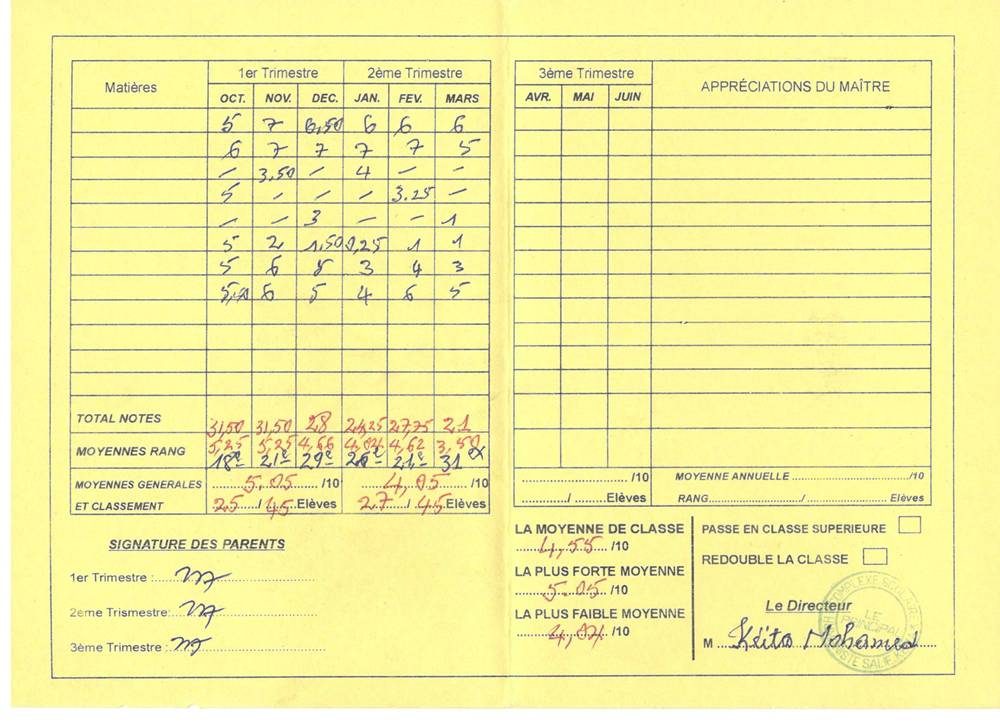 Matières 1er Trimestre 2ème Trimestre
OCT. NOV. DEC. JAN. FEV. MARS
5 7 6,50 6 6 6
6 7 7 7 7 5
- 3,50 - 4 - -
5 - - - 3.25 -
- - 3 - - 1
5 2 1,50 0,25 1 1
5 6 8 3 4 3
6 5 4 6 5
TOTAL NOTES 31,50 31,50 28 24,25 27,75 21
MOYENNES RANG 5,25 5,25 4,66 4,04 4,62 3,50
18e 21e 29e 21e 31
MOYENNES GENERALES 5.05 /10 4,05 /10
ET CLASSEMENT 25 / 45 Elèves 27 / 45 Elèves
SIGNATURE DES PARENTS
1er Trimestre :
2ème Trismestre:
3ème Trimestre :
3ème Trimestre APPRÉCIATIONS DU MAÎTRE
AVR. MAI JUIN
/10 MOYENNE ANNUELLE /10
/ Elèves RANG / Elèves
LA MOYENNE DE CLASSE
4,55 /10
LA PLUS FORTE MOYENNE
5.05 /10
LA PLUS FAIBLE MOYENNE
4,04 /10
PASSE EN CLASSE SUPERIEURE
REDOUBLE LA CLASSE
Le Directeur
LE PRINCIPAL
M Keita Mohamed